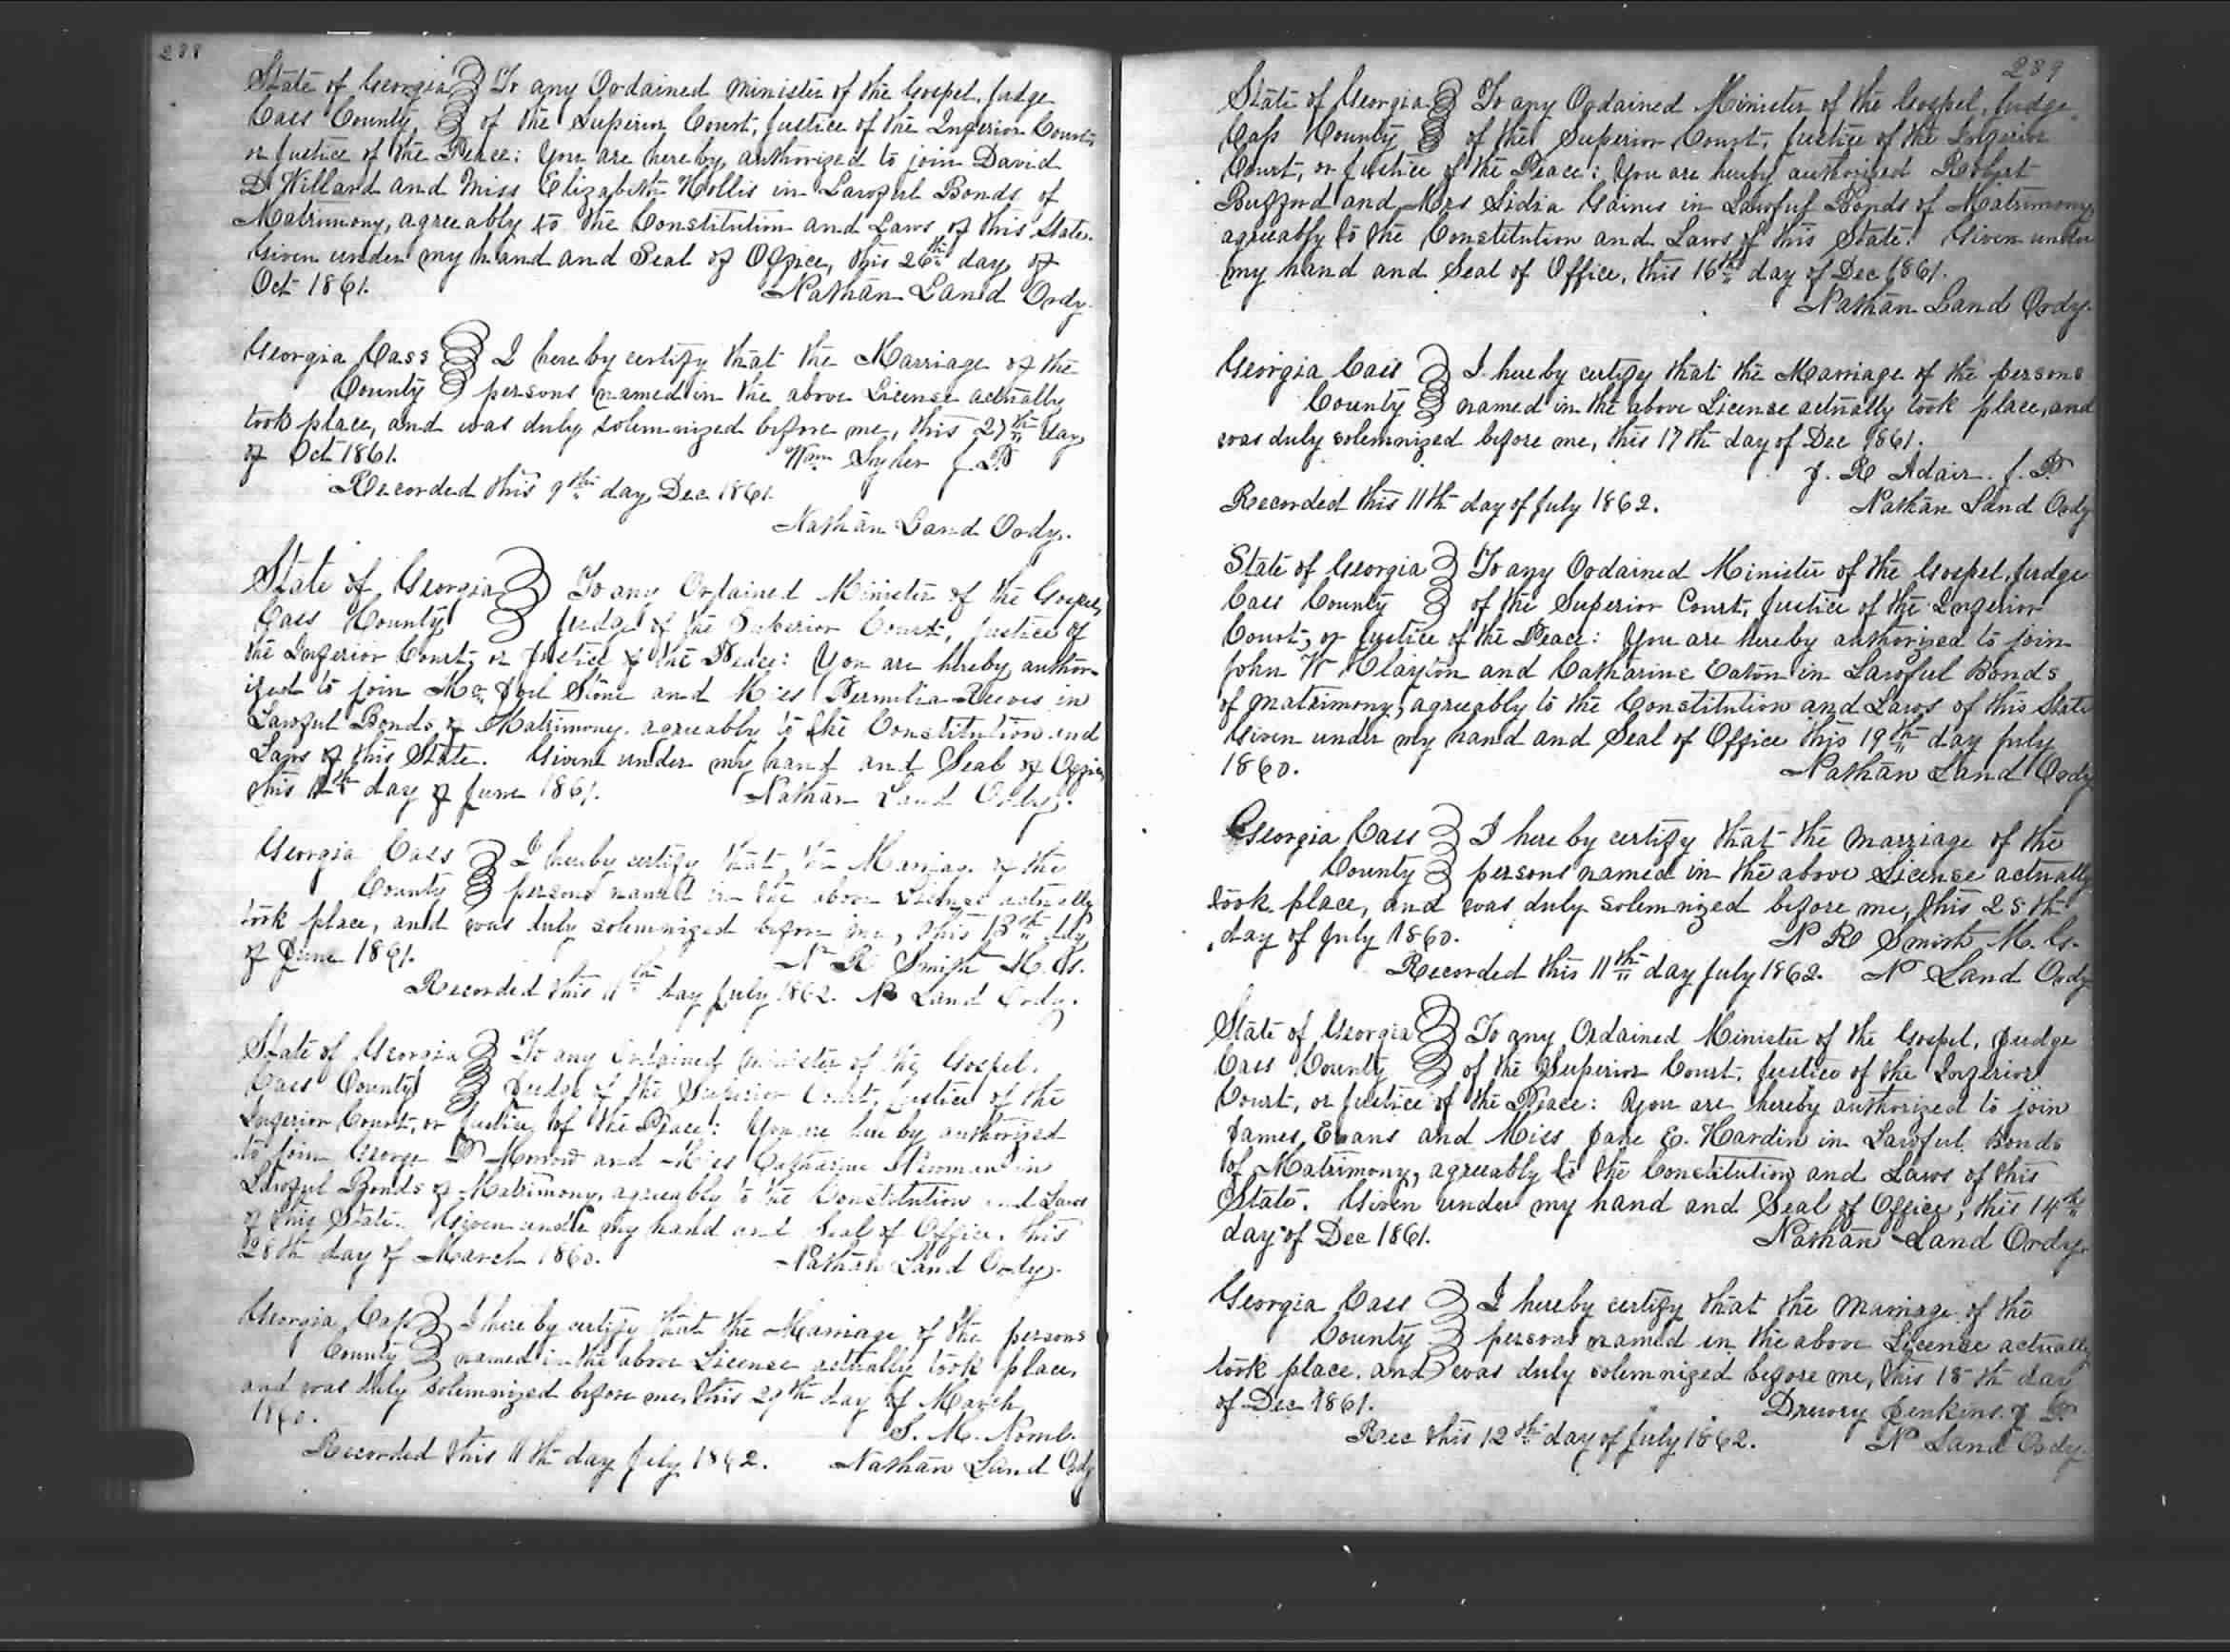 238
State of Georgia To any Ordained Minister of the Gospel, Judge
Cass County of the Superior Court, Justice of the Inferior Court,
or Justice of the Peace: You are hereby authorized to join David
D Willard and Miss Elizabeth Hollis in Lawful Bonds of
Matrimony, agreeably to the Constitution and Laws of this State.
Given under my hand and Seal of Office, this 26th day of
Oct 1861. Nathan Land Ordy.
Georgia Cass I hereby certify that the Marriage of the
County persons named in the above License actually
took place, and was duly solemnized before me, this 27th day
of Oct 1861. Wm J. P.
Recorded this 9th day Dec 1861.
Nathan Land Ordy.
State of Georgia To any Ordained Minister of the Gospel,
Cass County Judge of the Superior Court, Justice of
the Inferior Court, or Justice of the Peace: You are hereby author-
ized to join Mr Joel Stone and Miss Permelia Reeves in
Lawful Bonds of Matrimony, agreeably to the Constitution and
Laws of this State. Given under my hand and Seal of Office,
this day of June 1861. Nathan Land Ordy.
Georgia Cass I hereby certify that the Marriage of the
County persons named in the above License actually
took place, and was duly solemnized before me, this 13th day
of June 1861. N R Smith M. G.
Recorded this 11th day July 1862. N Land Ordy.
State of Georgia To any Ordained Minister of the Gospel,
Cass County Judge of the Superior Court, Justice of the
Inferior Court, or Justice of the Peace: You are hereby authorized
to join George Morrow and Miss Catharine Newman in
Lawful Bonds of Matrimony, agreeably to the Constitution and Laws
of this State. Given under my hand and Seal of Office, this
28th day of March 1860. Nathan Land Ordy.
Georgia Cass I hereby certify that the Marriage of the persons
County named in the above License actually took place,
and was duly solemnized before me, this 29th day of March
1860.
S. M.
Recorded this 11th day July 1862. Nathan Land Ordy
239
State of Georgia To any Ordained Minister of the Gospel, Judge
Cass County of the Superior Court, Justice of the Inferior
Court, or Justice of the Peace: You are hereby authorized Robert
Bufford and Mrs Lidia Gaines in Lawful Bonds of Matrimony,
agreeably to the Constitution and Laws of this State. Given under
my hand and Seal of Office, this 16th day of Dec 1861.
Nathan Land Ordy.
Georgia Cass I hereby certify that the Marriage of the persons
County named in the above License actually took place, and
was duly solemnized before me, this 17th day of Dec 1861.
J. R Adair. J. P.
Recorded this 11th day of July 1862. Nathan Land Ordy
State of Georgia To any Ordained Minister of the Gospel, Judge
Cass County of the Superior Court, Justice of the Inferior
Court, or Justice of the Peace: You are hereby authorized to join
John W Clayton and Catharine Eaton in Lawful Bonds
of matrimony, agreeably to the Constitution and Laws of this State
Given under my hand and Seal of Office this 19th day July
1860. Nathan Land Ordy
Georgia Cass I hereby certify that the marriage of the
County persons named in the above License actually
took place, and was duly solemnized before me, this 25th
day of July 1860. N R Smith M. G.
Recorded this 11th day July 1862. N Land Ordy
State of Georgia To any Ordained Minister of the Gospel, Judge
Cass County of the Superior Court, Justice of the Inferior
Court, or Justice of the Peace: You are hereby authorized to join
James Evans and Miss Jane E. Hardin in Lawful Bonds
of Matrimony, agreeably to the Constitution and Laws of this
State. Given under my hand and Seal of Office, this 14th
day of Dec 1861. Nathan Land Ordy.
Georgia Cass I hereby certify that the Marriage of the
County persons named in the above License actually
took place, and was duly solemnized before me, this 15th day
of Dec 1861. Drewry Jenkins J P
Rec this 12th day of July 1862. N Land Ordy.